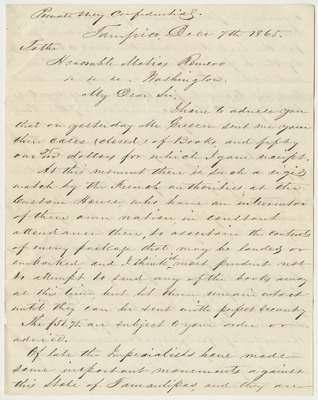 Private & Very Confidential.
Tampico, Decr 7th 1865.
To the
Honorable Matias Romero
&c &c &c - Washington.
My Dear Sir,
I have to advise you
that on yesterday Mr sent me
three Cases (closed) of Books, and fifty
one dollars for which I gave receipt.
At this moment there is such a rigid
watch by the French authorities, at the
Custom House, who have an interventor
of their own nation in constant
attendance there, to ascertain the contents
of every package that may be landed or
embarked and I think it most prudent not
to attempt to send any of the books away
at this time, but let them remain intact
until they can be sent with perfect security.
The are subject to your order or
advice.
Of late the Imperialists have made
some important movements against
this State of Tamaulipas, and they are